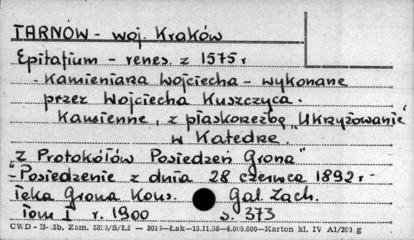 TARNÓW - woj. Kraków
Epitafium - renes. z 1575 r
- Kamieniarza Wojciecha - wykonane
przez Wojciecha Kuszczyca.
Kamienne, z płaskorzeźbą "Ukrzyżowanie"
w Katedrze.
"Z Protokółów Posiedzeń Grona"
- Posiedzenie z dnia 28 czerwca 1892 r -
Teka Grona Kons. Gal Zach.
Tom I r. 1900 s. 373
CWD - Zam. — Łak—15.11.56—4.000.000—Karton kl. IV A1/200 g